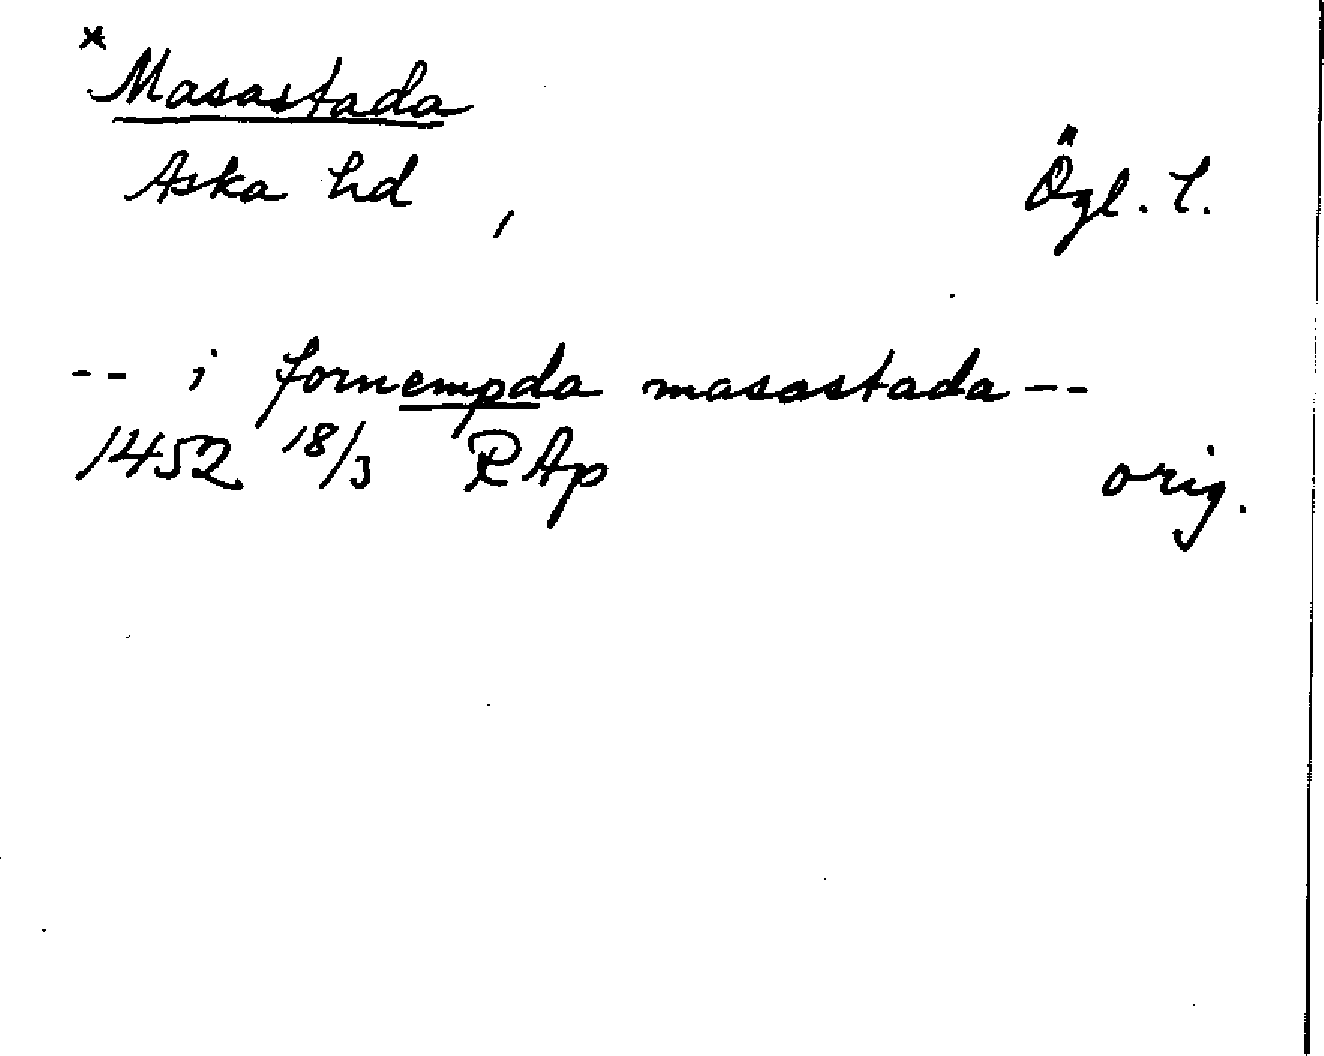 *Masastada
Aska hd, Ögl. l.
-- i fornempda masastada --
1452 18/3 RAp orig.